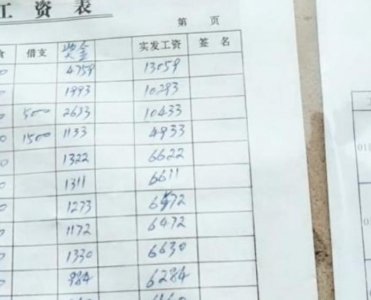 工资表
第 页
借支 奖金 实发工资 签名
0 4759 13059
0 1993 10293
0 500 2633 10433
0 1500 1133 4933
0 1322 6622
0 1311 6611
0 1273
0 1172 6472
0 1330 6630
0 984 6284